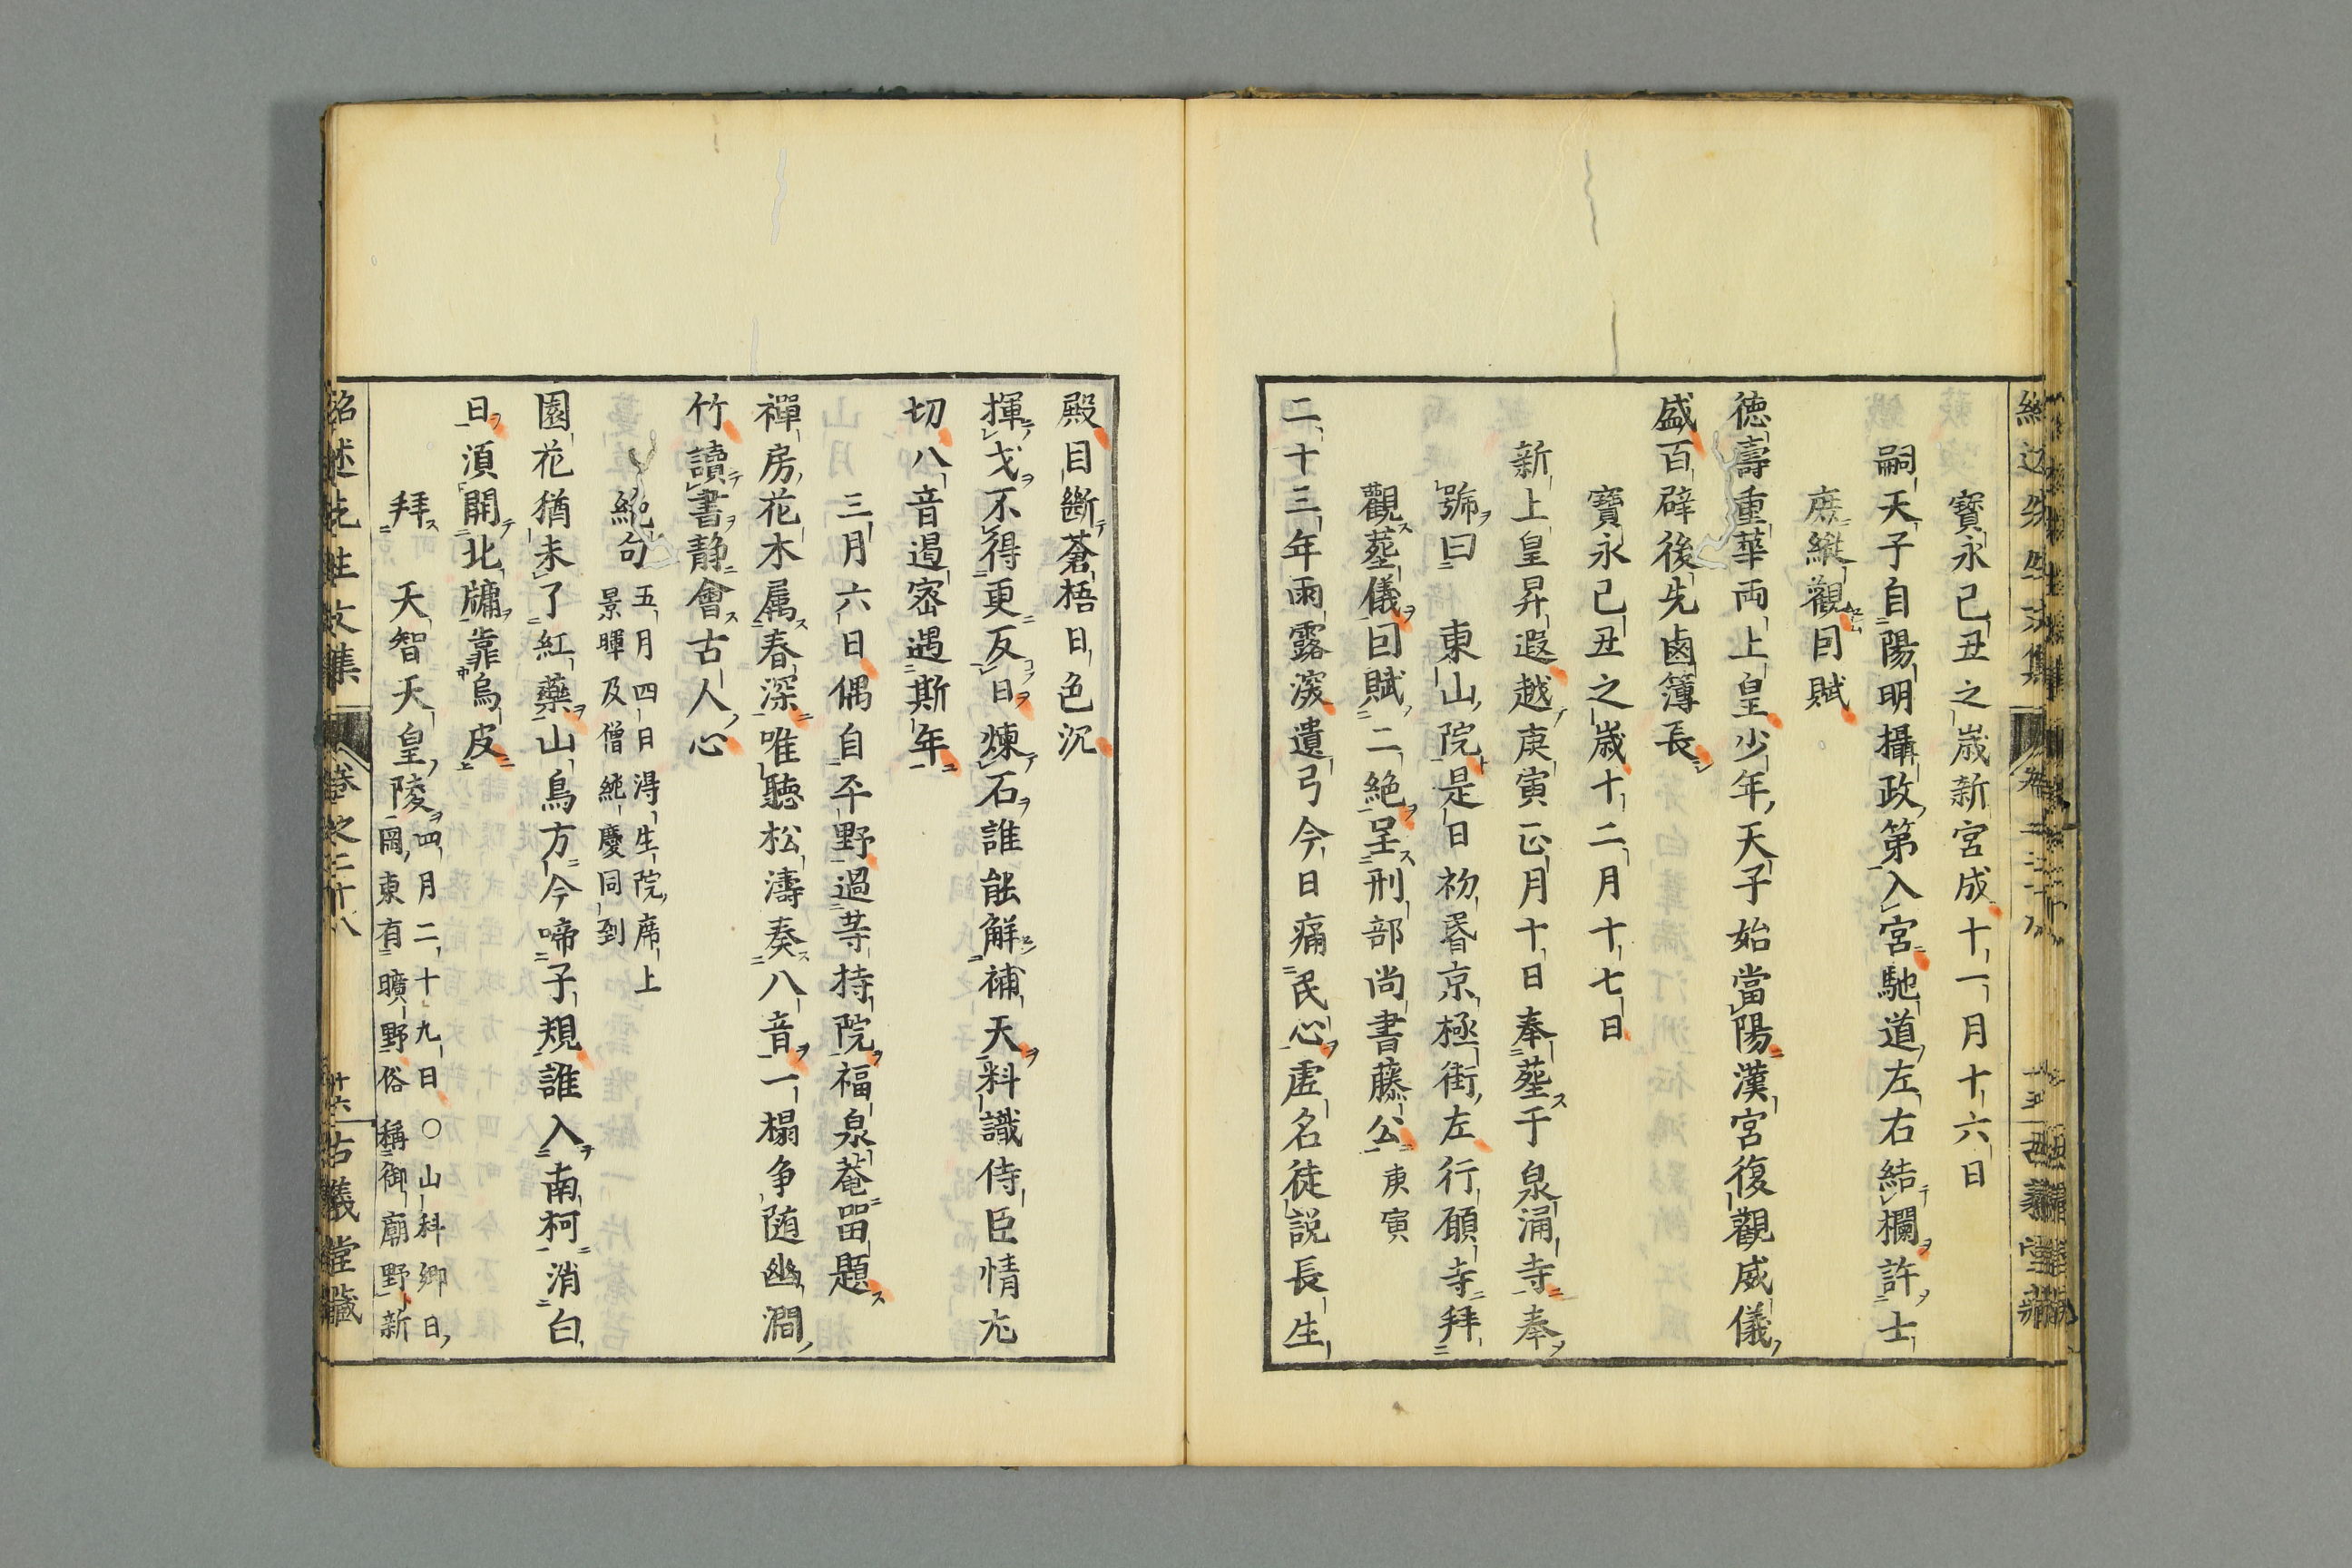 寶永己丑之歳新宮成十一月十六日
嗣天子自陽明攝政第入宮馳道左右結欄許士
庶縱觀因賦
徳壽重華両上皇少年天子始當陽漢宮復觀威儀
盛百辟後先鹵簿長
寶永己丑之歳十二月十七日
新上皇昇遐越庚寅正月十日奉葬于泉涌寺奉
號曰　東山院是日初昏京極街左行願寺拜
觀葬儀因賦二絶呈刑部尚書藤公庚寅
二十三年雨露深遺弓今日痛民心虚名徒説長生
殿目斷蒼梧日色沉
揮戈不得更反日煉石誰能解補天料識侍臣情尤
切八音遏密遇斯年
三月六日偶自平野過等持院福泉菴留題
禪房花木属春深唯聴松濤奏八音一榻争随幽澗
竹讀書静會古人心
絶句
五月四日得生院席上
景暉及僧純慶同到
園花猶未了紅藥山鳥方今啼子規誰入南柯消白
日須開北牗靠烏皮
拜　天智天皇陵
四月二十九日○山科郷日
岡東有曠野俗稱御廟野新
紹述先生文集　卷之二十八　廿六　古義堂藏